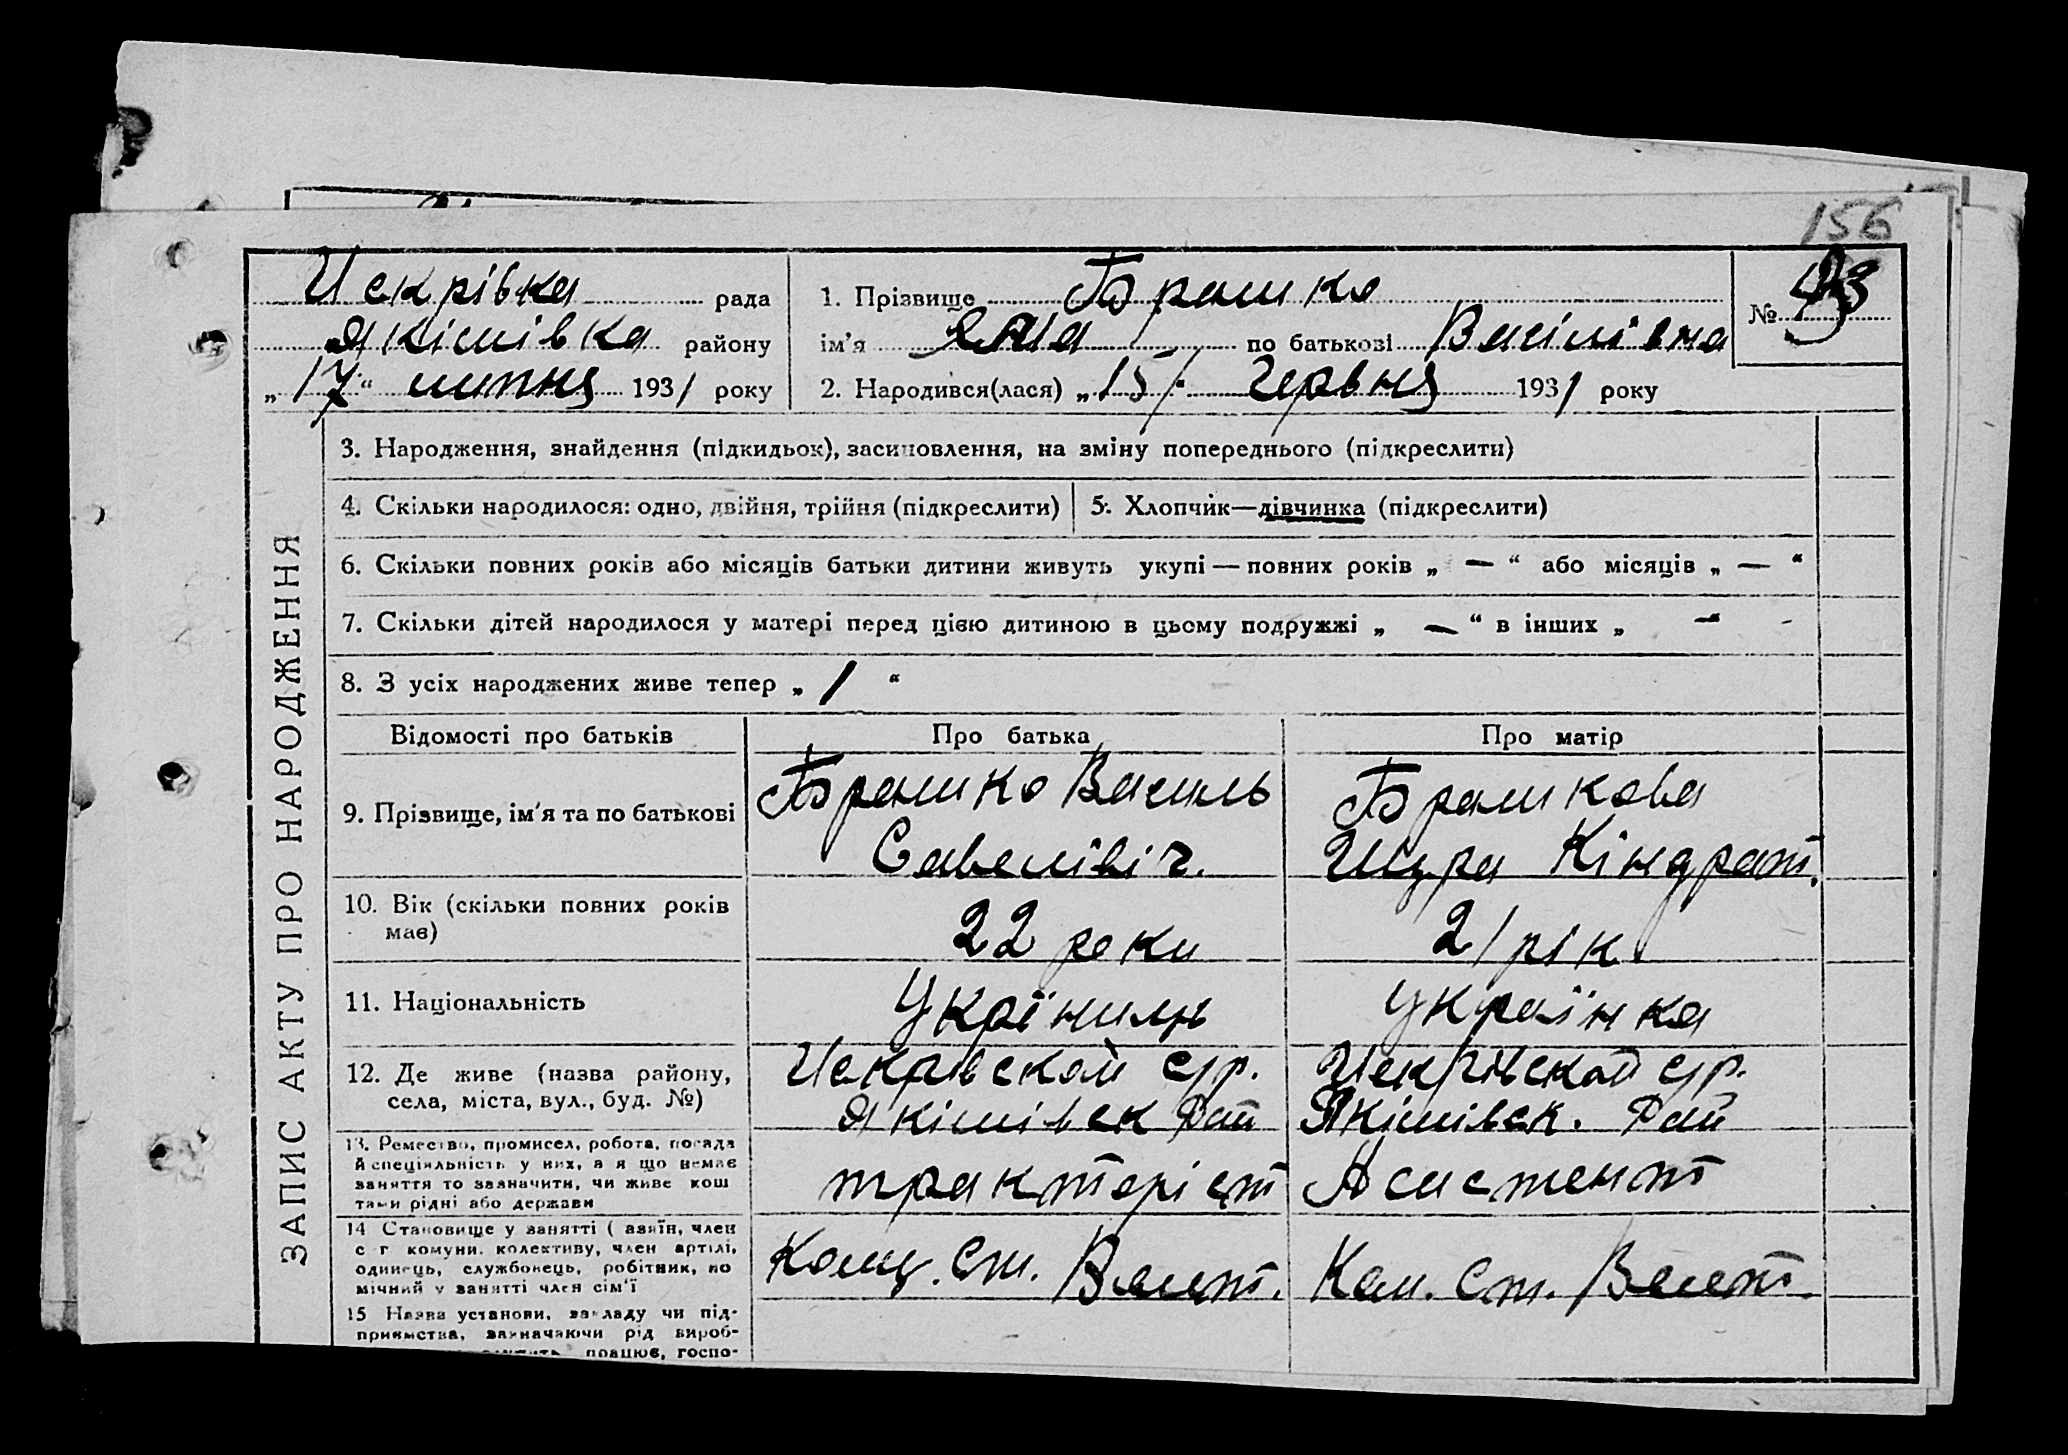 156
Искрівка рада
Якімівка району
„17“ липня 1931 року
1. Прізвище Брашко
ім'я по батькові Васілівна
2. Народився(лася) „15“ Червня 1931 року
№
ЗАПИС АКТУ ПРО НАРОДЖЕННЯ
3. Народження, знайдення (підкидьок), засиновлення, на зміну попереднього (підкреслити)
4. Скільки народилося: одно, двійня, трійня (підкреслити)
5. Хлопчик—дівчинка (підкреслити)
6. Скільки повних років або місяців батьки дитини живуть укупі — повних років „ — “ або місяців „ — “
7. Скільки дітей народилося у матері перед цією дитиною в цьому подружжі „ — “ в інших „ — “
8. З усіх народжених живе тепер „ 1 “
Відомості про батьків
Про батька
Про матір
9. Прізвище, ім'я та по батькові
Брашко Василь
Савелівіч.
Брашкова
Шура Кіндрат.
10. Вік (скільки повних років
має)
22 роки
21 рік
11. Національність
Украінець
Украінка
12. Де живе (назва району,
села, міста, вул., буд. №)
Искрівской с/р.
Якімівск Рай
Искрівской с/р.
Якімівск. Рай
13. Ремество, промисел, робота, посада
й спеціяльність у них, а я що немає
заняття то зазначити, чи живе кош
тами рідні або держави
тракторіст
Асистент
14 Становище у занятті ( азяїн, член
с г комуни, колективу, член артілі,
одинець, службовець, робітник, по
мічний у занятті член сім'ї
Ком. Ст.
Ком. Ст.
15 Назва установи, закладу чи під-
приємства, зазначаючи рід вироб-
працює, госпо-